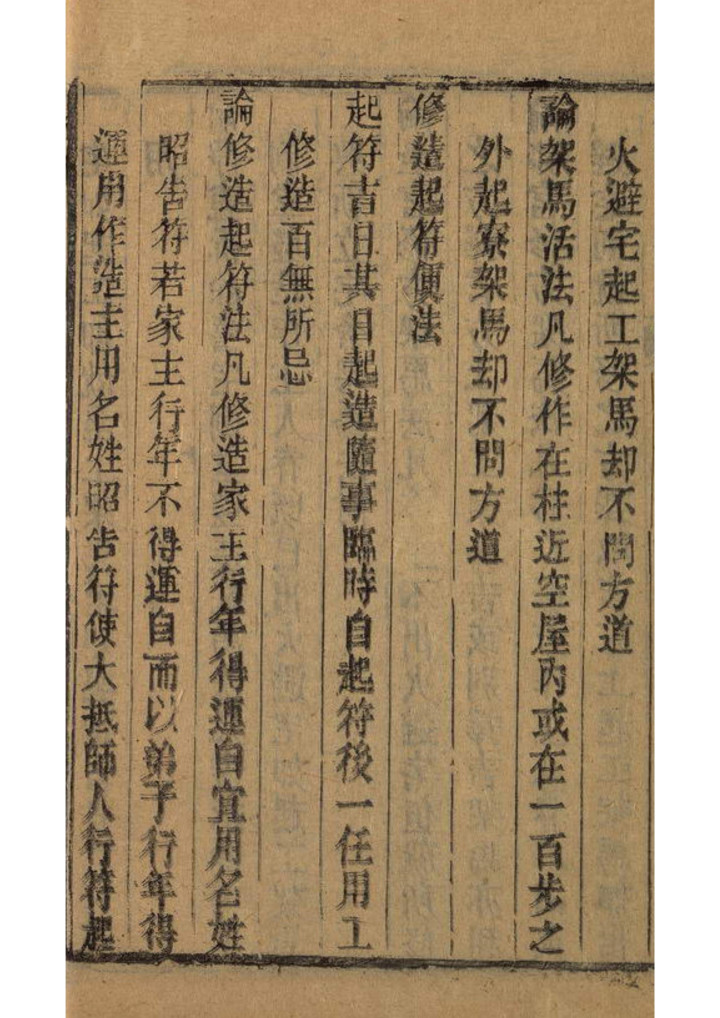 火避宅起工架馬却不問方道
論架馬活法凡修作在柱近空屋內或在一百步之
外起寮架馬却不問方道
修造起符便法
起符吉日其目起造隨事臨時自起符後一任用工
修造百無所忌
論修造起符法凡修造家主行年得運自宜用名姓
昭告符若家主行年不得運自而以弟子行年得
運用作造主用名姓昭告符使大抵師人行符起